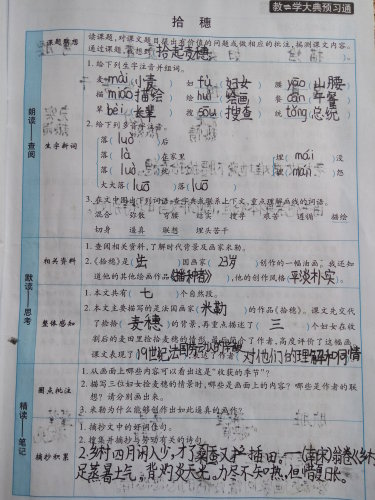 教与学大典预习通
拾穗
课题猜想
读课题,对课文题目提出有价值的问题或做相应的批注,猜测课文内容。
通过课题,我想到 拾是麦穗
朗读——查阅
生字新词
1. 给下列生字注音并组词。
麦 mài 小麦 妇 fù 妇女 腰 yāo 山腰
描 miáo 描绘 绘 huì 绘画 餐 cān 午餐
辈 bèi 长辈 搜 sōu 搜查 统 tǒng 总统
2. 给下列多音字注音。
落( luò )后
落( là )在家里 埋( mái )没
落( luò )枕 埋( mán )怨
大大落( luō )落( luō )
3. 在文中圈出下列词语,查字典或联系上下文,重点理解画线的词语。
混合 弥散 弯腰 统一 搜寻 艰苦 通俗 描绘
切身 遥真 联想 埋头苦干
默读——思考
相关资料
1. 查阅相关资料,了解时代背景及画家米勒。
2.《拾穗》是( 法 )国画家( 23岁 )创作的一幅油画。我还知
道他的其他绘画作品《播种者》,他的创作风格( 平淡朴实 )。
整体感知
1. 本文共有( 七 )个自然段。
2. 本文主要描写的是法国画家( 米勒 )的作品《拾穗》。课文先交代
了拾捡( 麦穗 )的背景,再重点描述了( 三 )个妇女在收
割后的麦田里捡拾麦穗的情形,最后简介了作者,高度评价了这幅画
课文表现了( 19世纪法国劳动人的辛酸 )表达了作者( 对他们的理解和同情
精读——笔记
圈点批注
1. 从画面上哪些内容可以看出这是“收获的季节”?
2. 描写三位妇女捡麦穗的情景时,哪些是画面上的内容?哪些是作者的联
想?请分别画出来。
3. 米勒为什么能够创作出如此逼真的画作?
摘抄积累
1. 摘抄文中的好词佳句。
2. 搜集并摘抄与劳动有关的诗句。
2. 乡村四月闲人少,才了蚕桑又插田。——(南宋)翁卷《乡村
足蒸暑土气,背灼炎天光。力尽不知热,但惜夏日长。